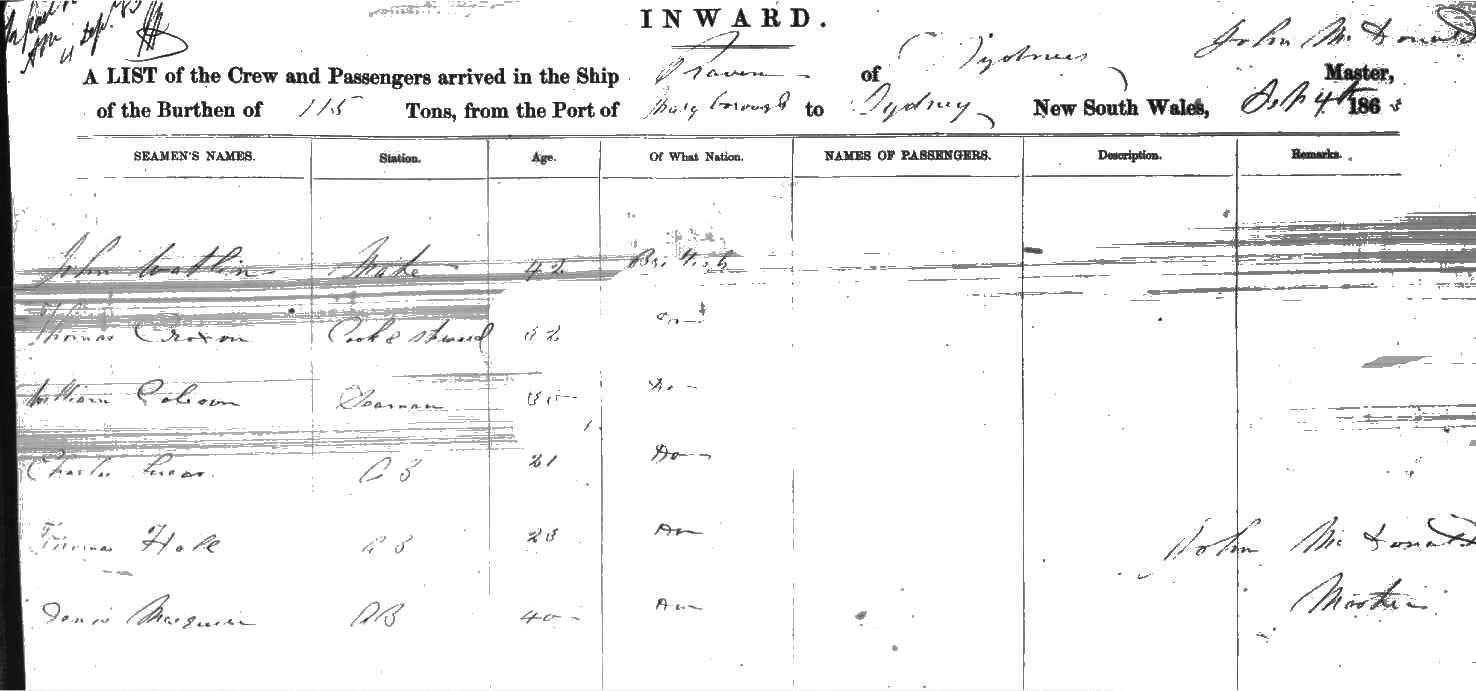 INWARD.
John McDonald
A LIST of the Crew and Passengers arrived in the Ship Raven of Sydney Master,
of the Burthen of 115 Tons, from the Port of Maryborough to Sydney New South Wales, Sep 4th 1863
SEAMEN'S NAMES. Station. Age. Of What Nation. NAMES OF PASSENGERS. Description. Remarks.
John Mate 42 British
Thomas Croxon Cook & Steward 32 Do
William Seaman Do
Charles Lucas A B 21 Do
Thomas Hall A B 23 Do
A B 40 Do
John McDonald
Master